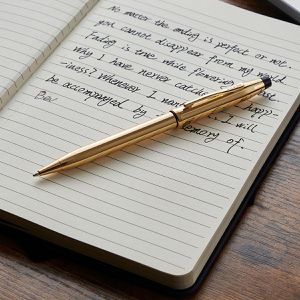 No matter the ending is perfect or not.
you cannot disappear from my
Fading is true while flowering
Why I have never
iness? Whenever I I will
be accompanied by memory of.